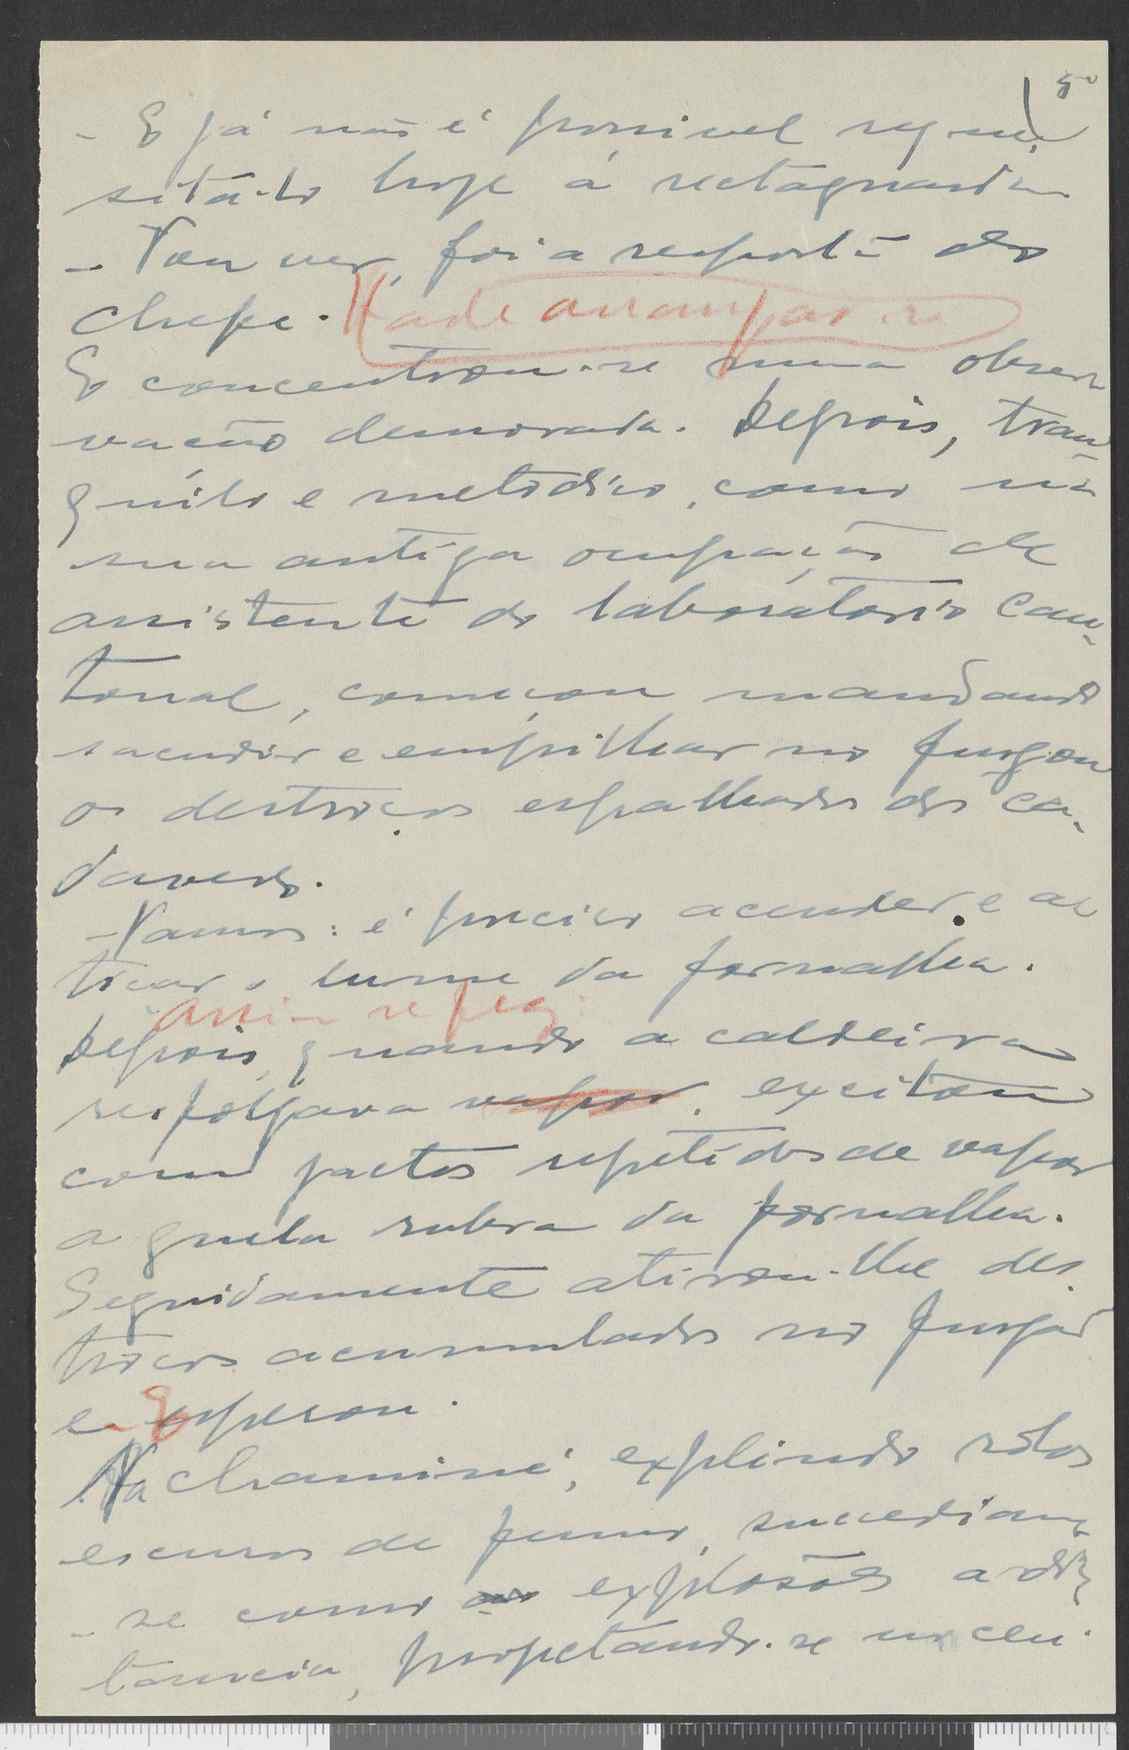 5
- E já não é possivel requi-
sitá-lo hoje á rectaguarda
- Vou ver, foi a resposta do
chefe. Hade arranjar-se
E concentrou-se numa obser
vação demorada. Depois, tran-
quilo e metodico, como na
sua antiga ocupação de
assistente do laboratorio Can-
tonal, começou mandando
sacudir e empilhar no furgon
os destroços espalhados dos ca-
daveres.
- Vamos: é preciso acender e ac
tivar o lume da fornalha.
Assim se fez.
Depois, quando a caldeira
resfolgava vapor, excitou
com jactos repetidos de vapor
a guela rubra da fornalha.
Seguidamente atirou-lhe des
troços acumulados no furgão
e E esperou.
Na chaminé, explindo rôlos
escuros de fumo, sucediam
- se como as explosões a dis
tancia, projetando-se no ceu.